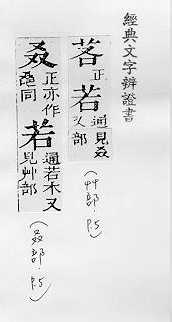 經典文字辨證書
正若通見叒
部
(艸部.P.5)
叒正亦作
同若通若木又
見艸部
(叒部.P.5)